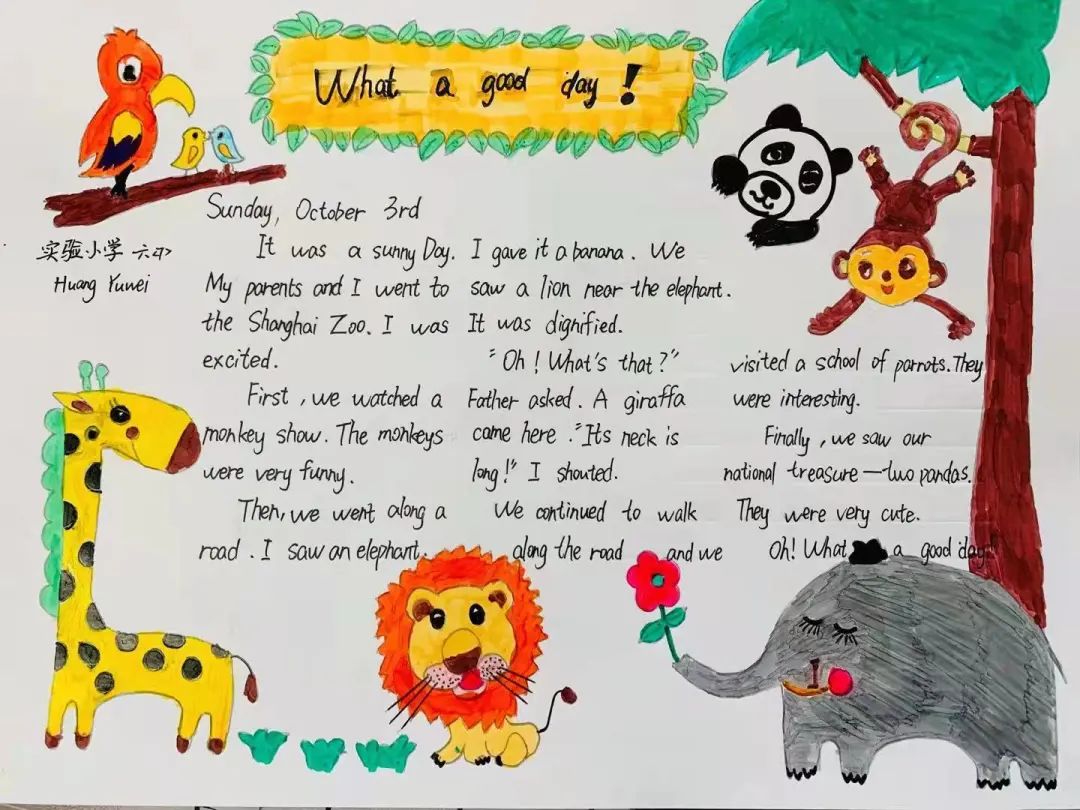 What a good day!
实验小学 六(1)
Huang Yuwei
Sunday, October 3rd
It was a sunny Day.
My parents and I went to
the Shanghai Zoo. I was
excited.
First, we watched a
monkey show. The monkeys
were very funny.
Then, we went along a
road. I saw an elephant.
I gave it a banana. We
saw a lion near the elephant.
It was dignified.
"Oh! What's that?"
Father asked. A giraffa
came here. "Its neck is
long!" I shouted.
We continued to walk
along the road and we
visited a school of parrots. They
were interesting.
Finally, we saw our
national treasure—two pandas.
They were very cute.
Oh! What a good day!